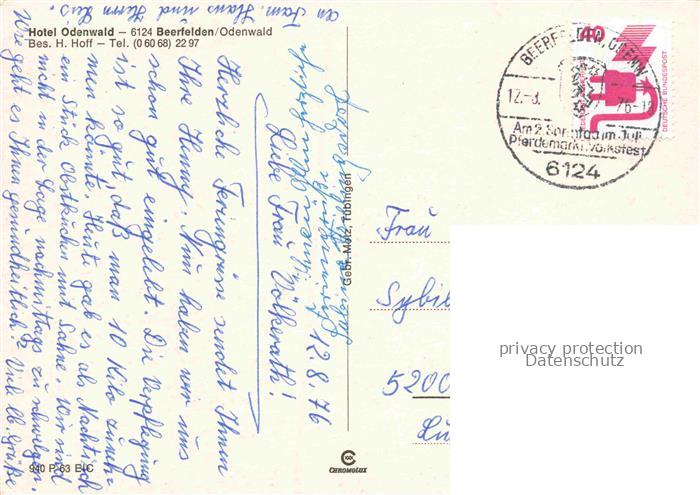 Hotel Odenwald – 6124 Beerfelden/Odenwald
Bes. H. Hoff – Tel. (0 60 68) 22 97
12.8.76
Liebe Frau Völkerath!
Herzliche Feriengrüße sendet Ihnen
Ihre Henny. Nun haben wir uns
schon gut eingelebt. Die Verpflegung
ist so gut, daß man 10 Kilo zuneh-
men könnte. Heute gab es als Nachtisch
ein Stück Obstkuchen mit Sahne. Wir sind
nicht in der Lage nachmittags zu schwelgen.
Wie geht es Ihnen gesundheitlich? Viele lb. Grüße
an Fam. Hans und Herrn
Gebr. Metz, Tübingen
940 P 63 B/C
CHROMOLUX
BEERFELDEN, ODENW
12.-8. 76-12
Am 2. Sonntag im Juli
Pferdemarkt, Volksfest
6124
40
DEUTSCHE BUNDESPOST
Frau
Sybil
5200
privacy protection
Datenschutz